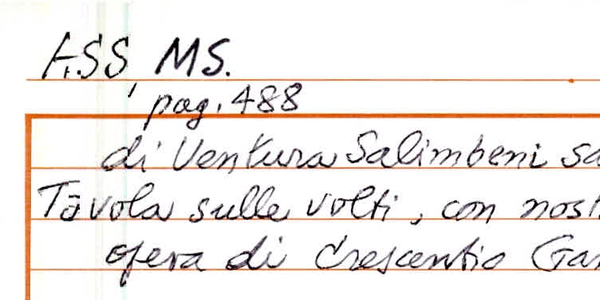 ASS, MS.
pag. 488
di Ventura Salimbeni sa
Tavola sulle volti, con nost
opera di Crescentio Gam